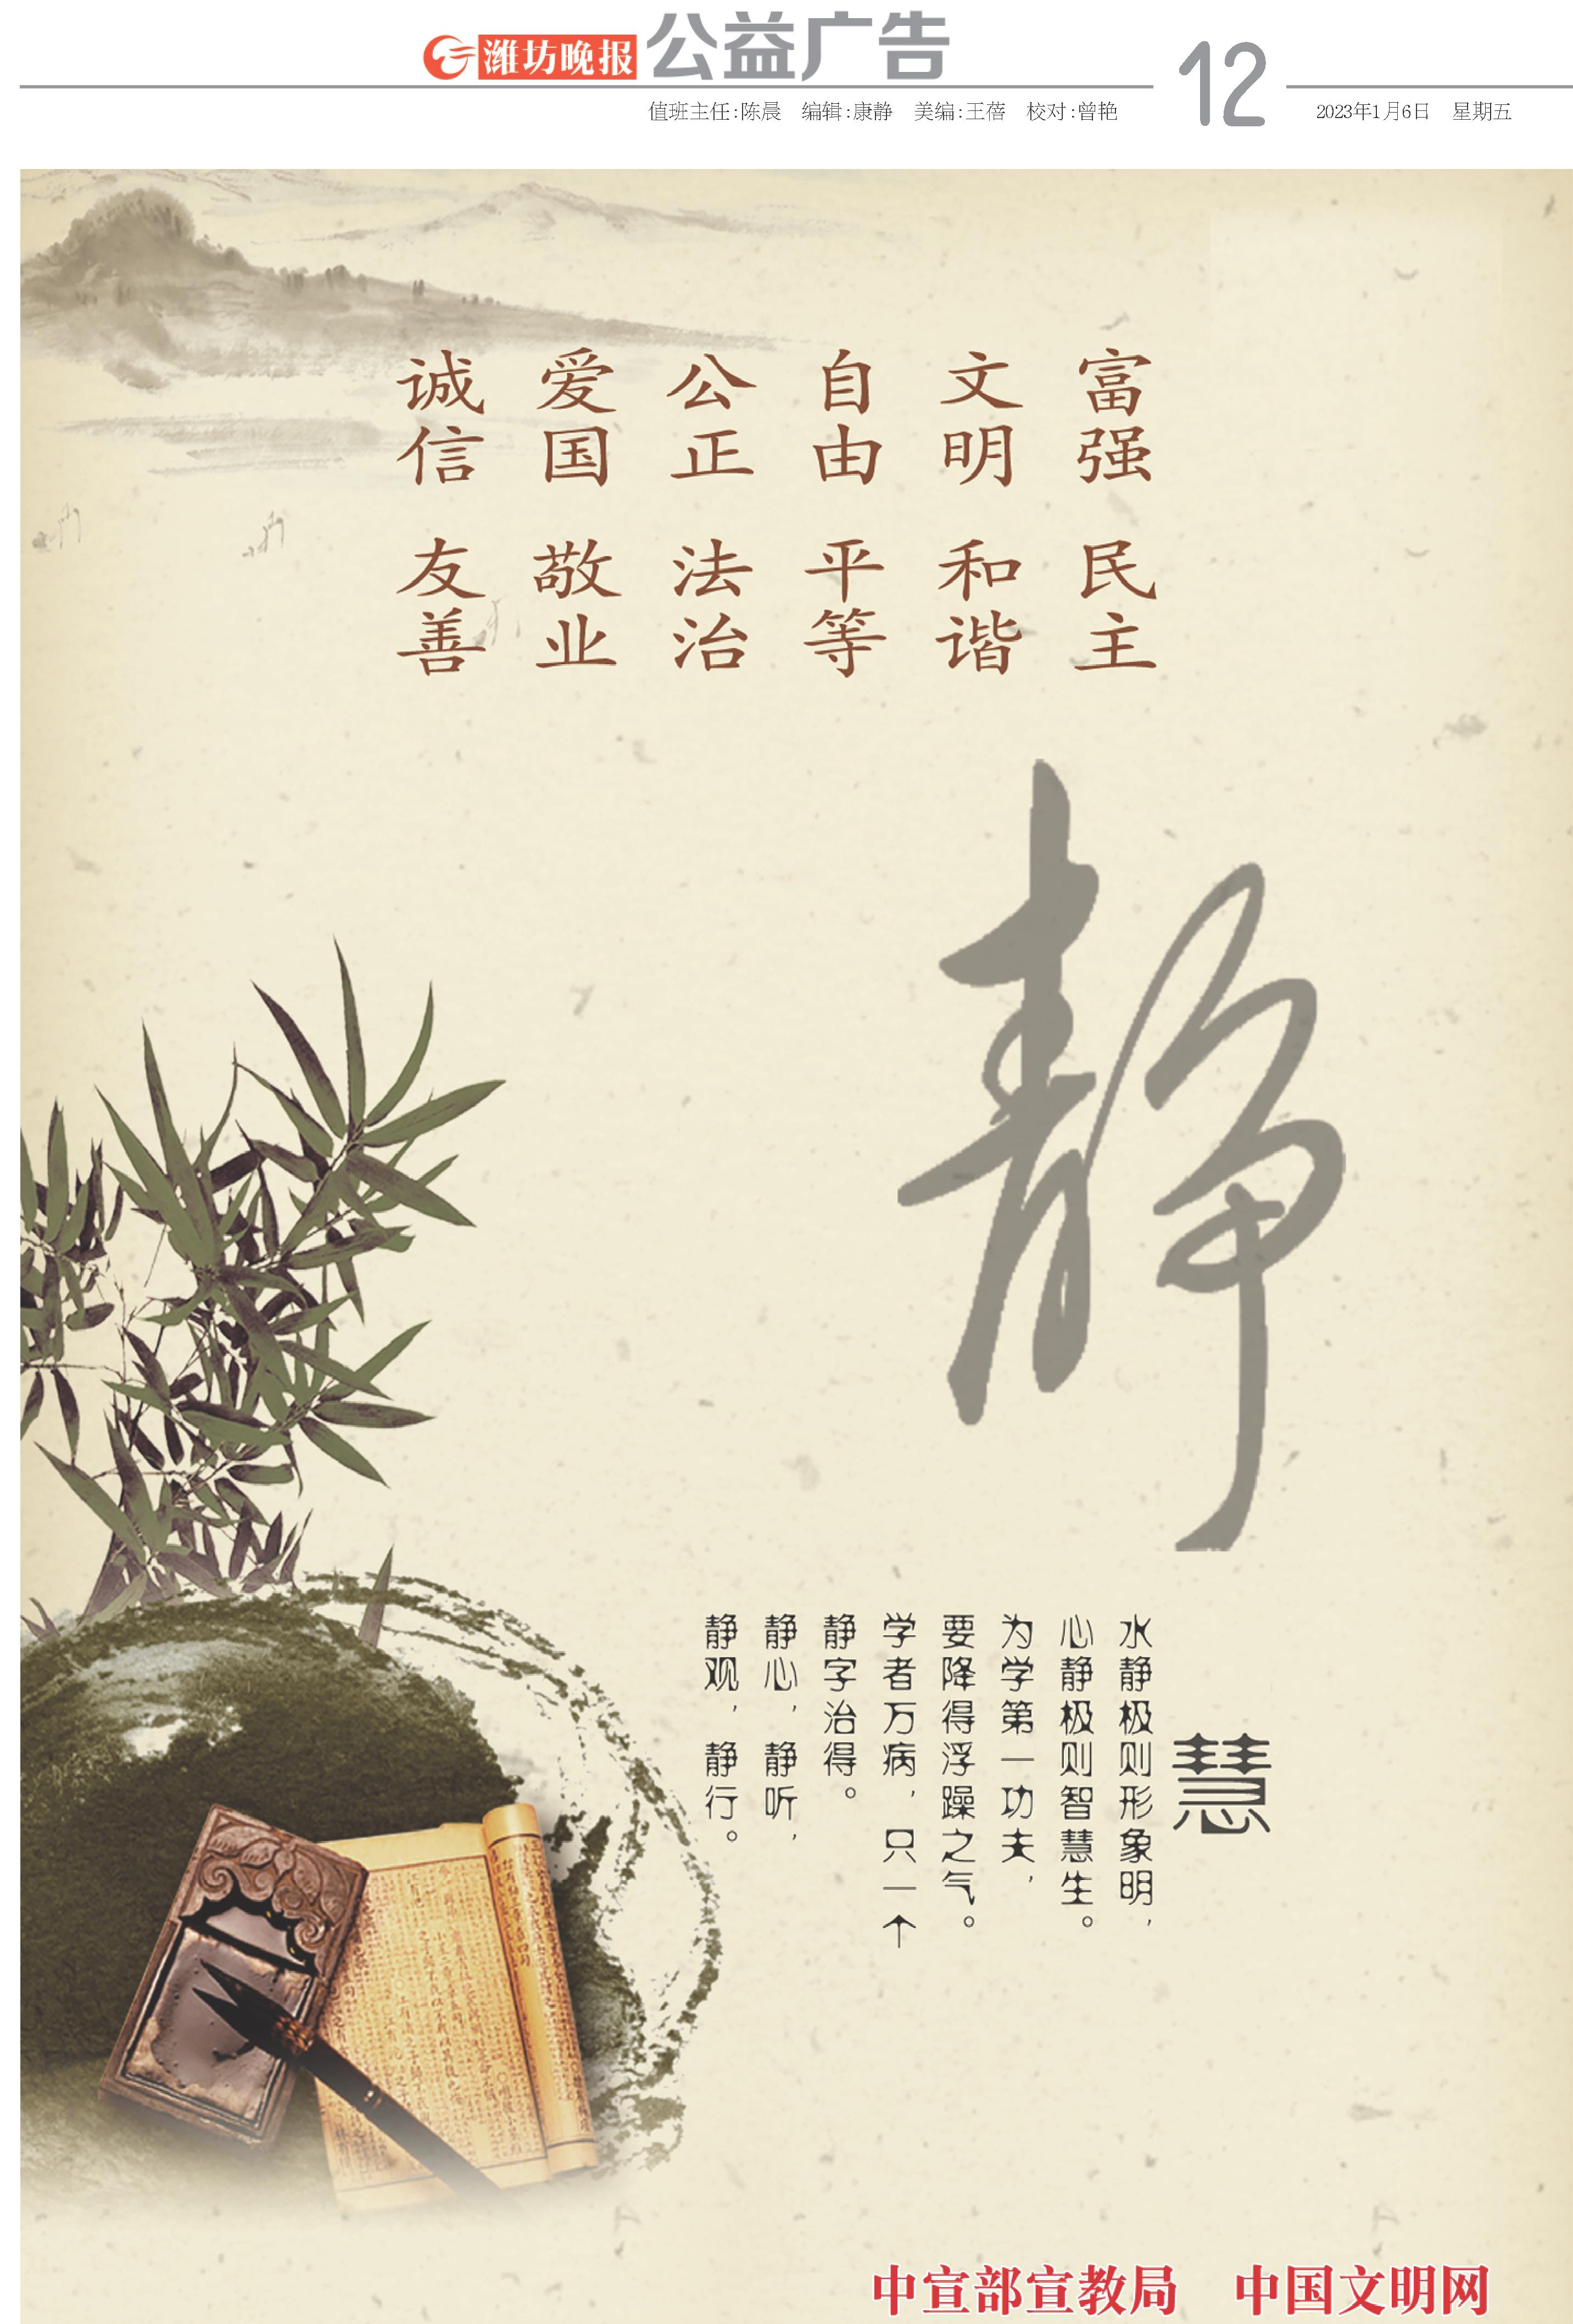 潍坊晚报 公益广告
值班主任:陈晨 编辑:康静 美编:王蓓 校对:曾艳
12
2023年1月6日 星期五
富强 民主
文明 和谐
自由 平等
公正 法治
爱国 敬业
诚信 友善
静
慧
水静极则形象明，
心静极则智慧生。
为学第一功夫，
要降得浮躁之气。
学者万病，只一个
静字治得。
静心，静听，
静观，静行。
中宣部宣教局 中国文明网